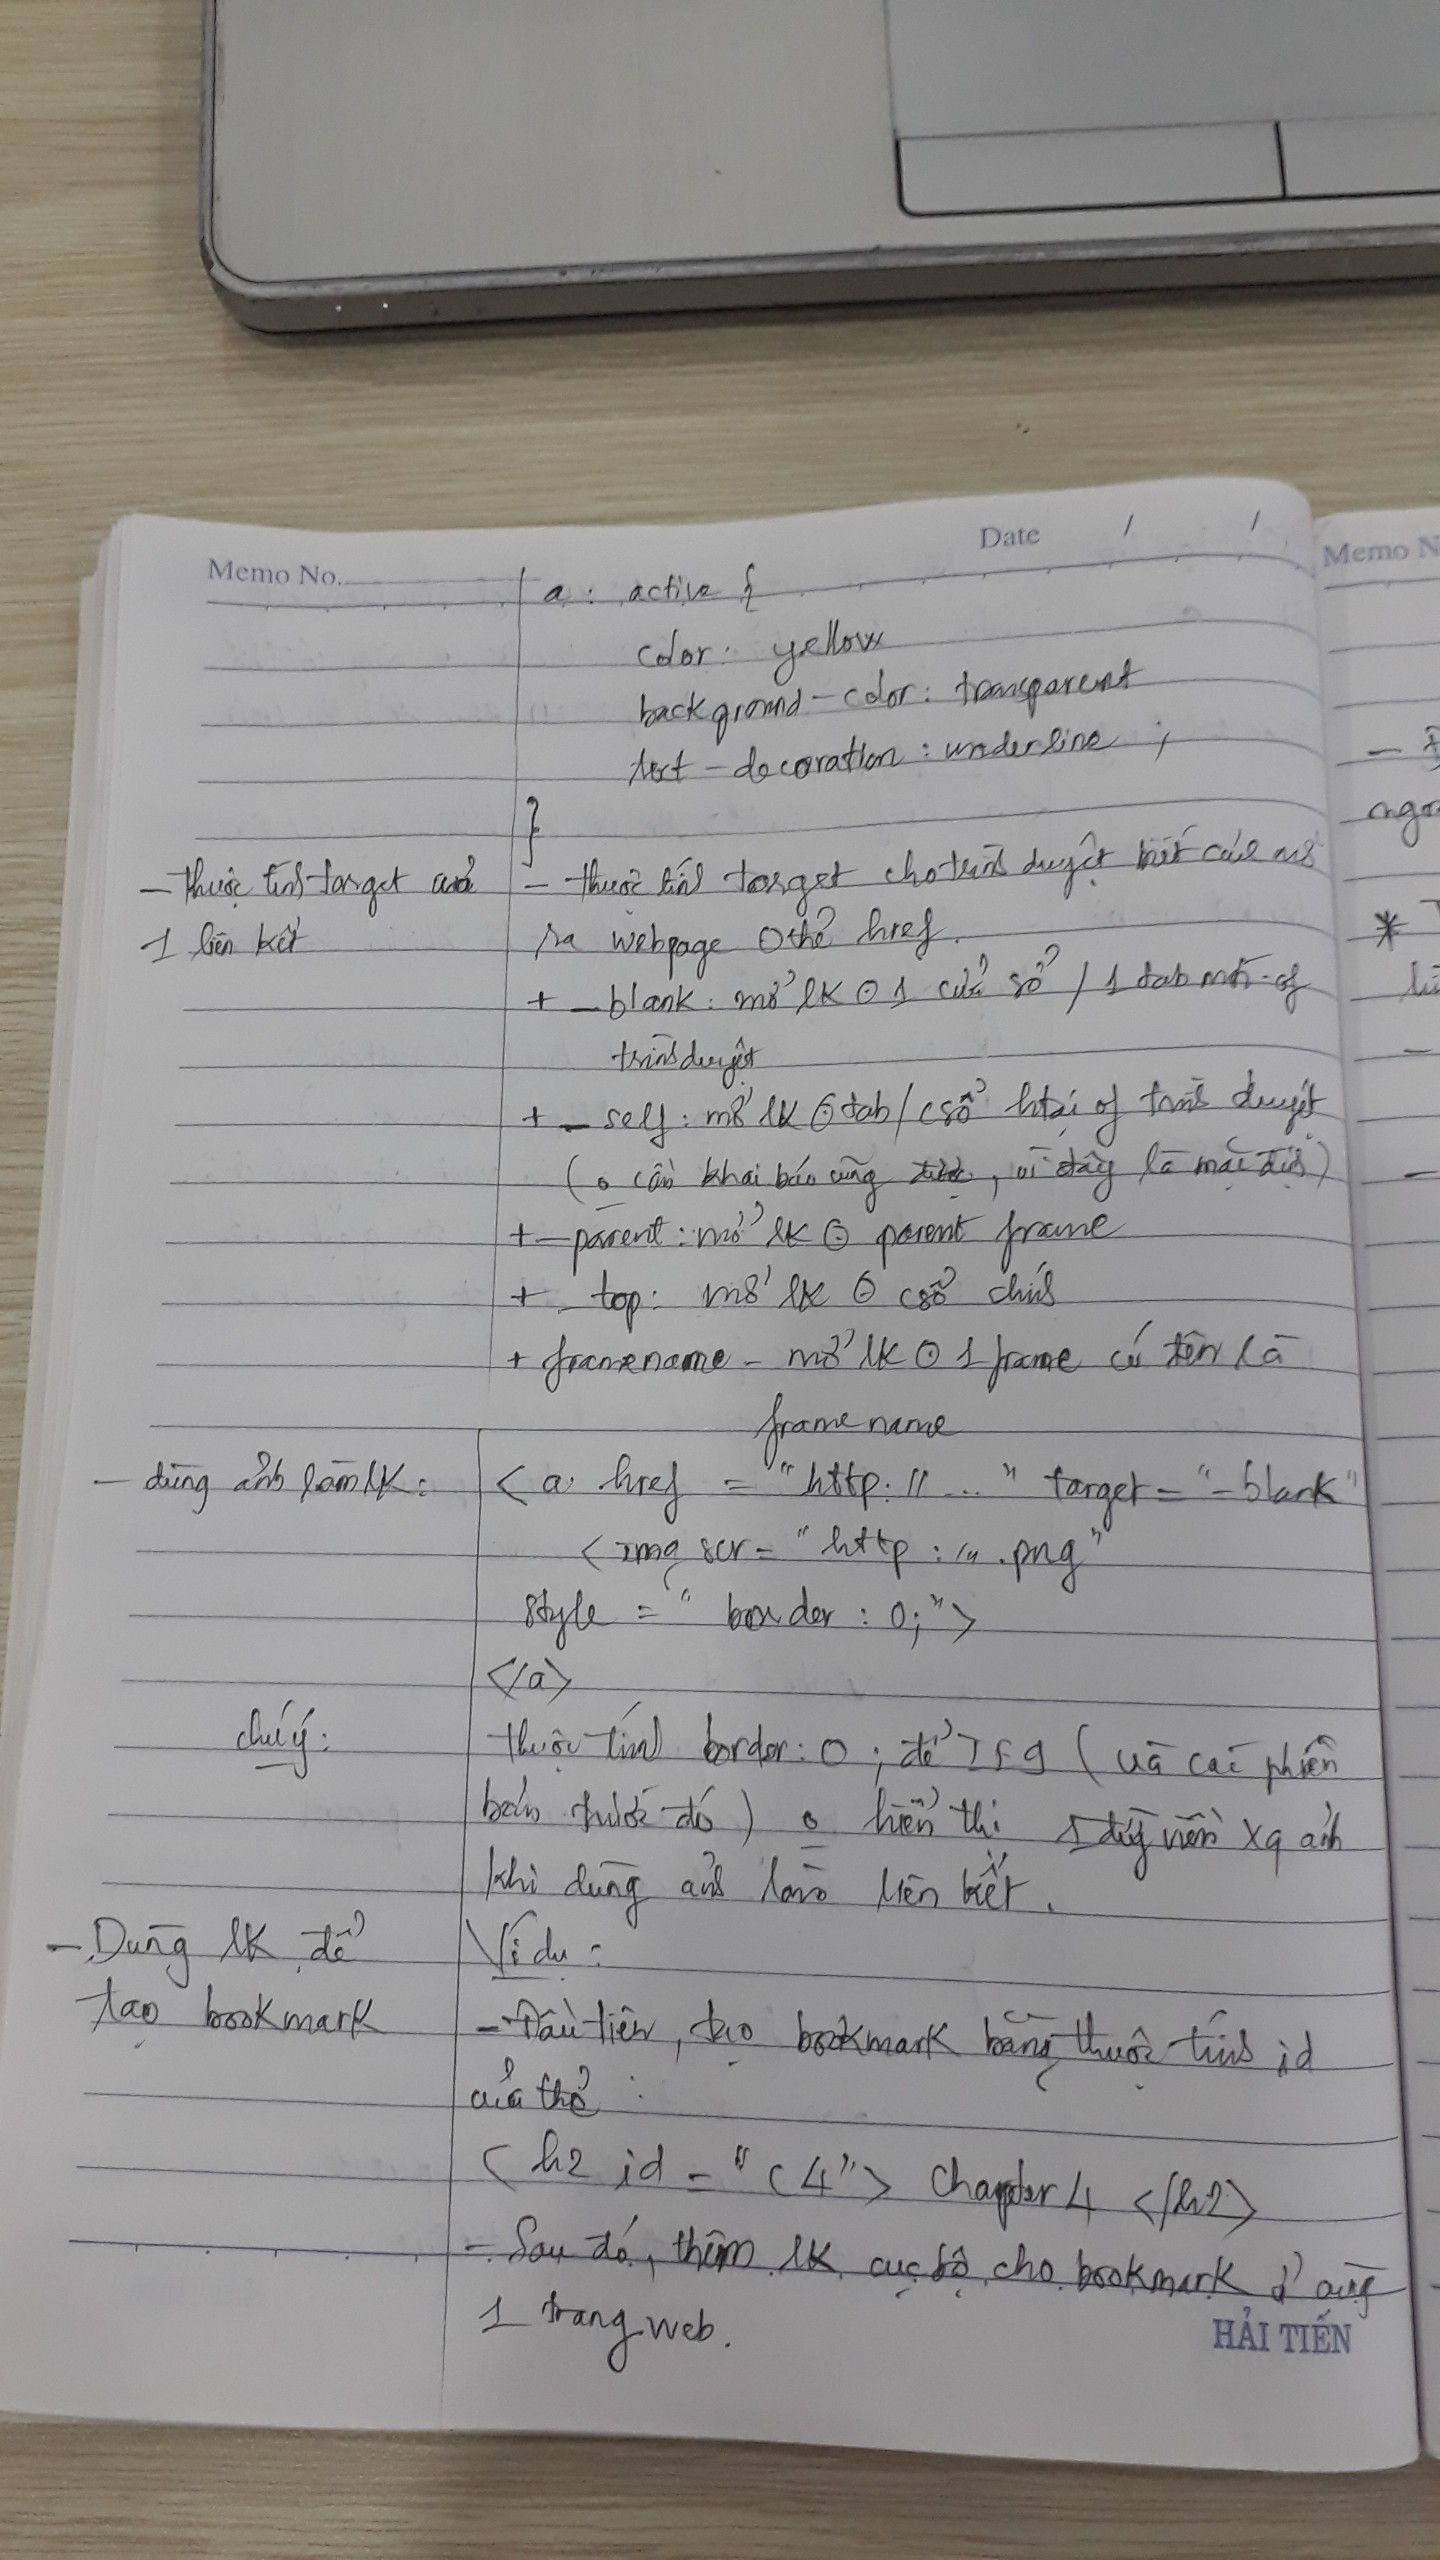 Memo No.
Date / /
Memo N
a : active {
color: yellow
background-color: transparent
text-decoration: underline ;
}
- thuộc tính target của
1 liên kết
- thuộc tính target cho trình duyệt biết cách mở
ra webpage ⊙ thẻ href.
+ _blank: mở lk ⊙ 1 cửa sổ / 1 tab mới of
trình duyệt
+ _self: mở lk ⊙ tab/csổ htại of trình duyệt
(o cần khai báo cũng được, vì đây là mặc định)
+ _parent: mở lk ⊙ parent frame
+ _top: mở lk ⊙ csổ chính
+ framename - mở lk ⊙ 1 frame có tên là
framename
- dùng ảnh làm lk:
<a href = "http://..." target = "_blank"
<img scr = "http:/...png"
style = "border : 0;">
</a>
chú ý:
thuộc tính border: 0 ; để IE9 (và các phiên
bản trước đó) o hiển thị 1 đg viền xq ảnh
khi dùng ảnh làm liên kết.
- Dùng lk để
tạo bookmark
Ví dụ :
- Đầu tiên, tạo bookmark bằng thuộc tính id
của thẻ :
<h2 id = "C4"> Chapter 4 </h2>
- Sau đó, thêm lk cục bộ cho bookmark ở cùng
1 trang web.
HẢI TIẾN